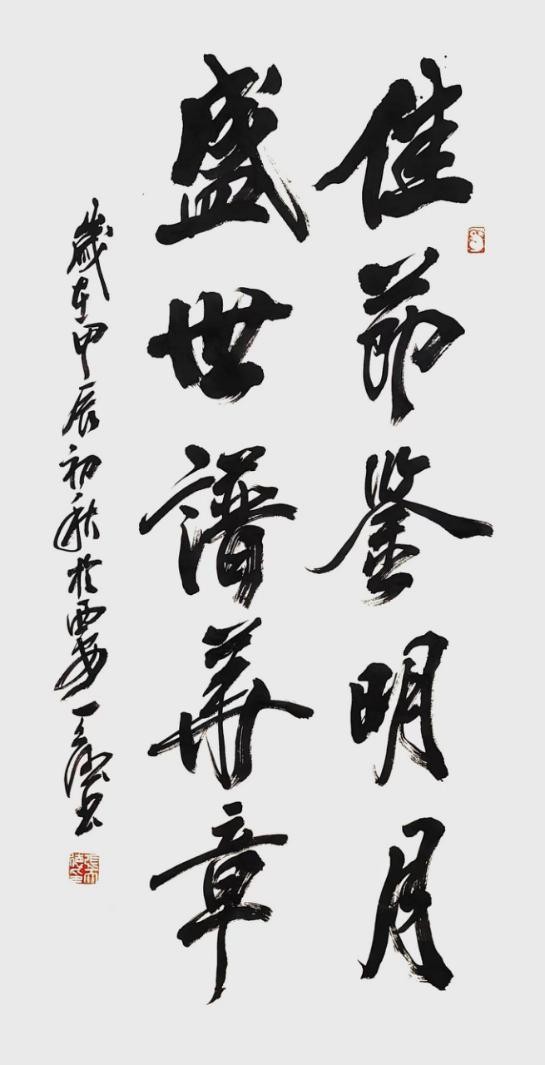 佳節鉴明月
盛世譜華章
歲在甲辰初秋於西安一德书